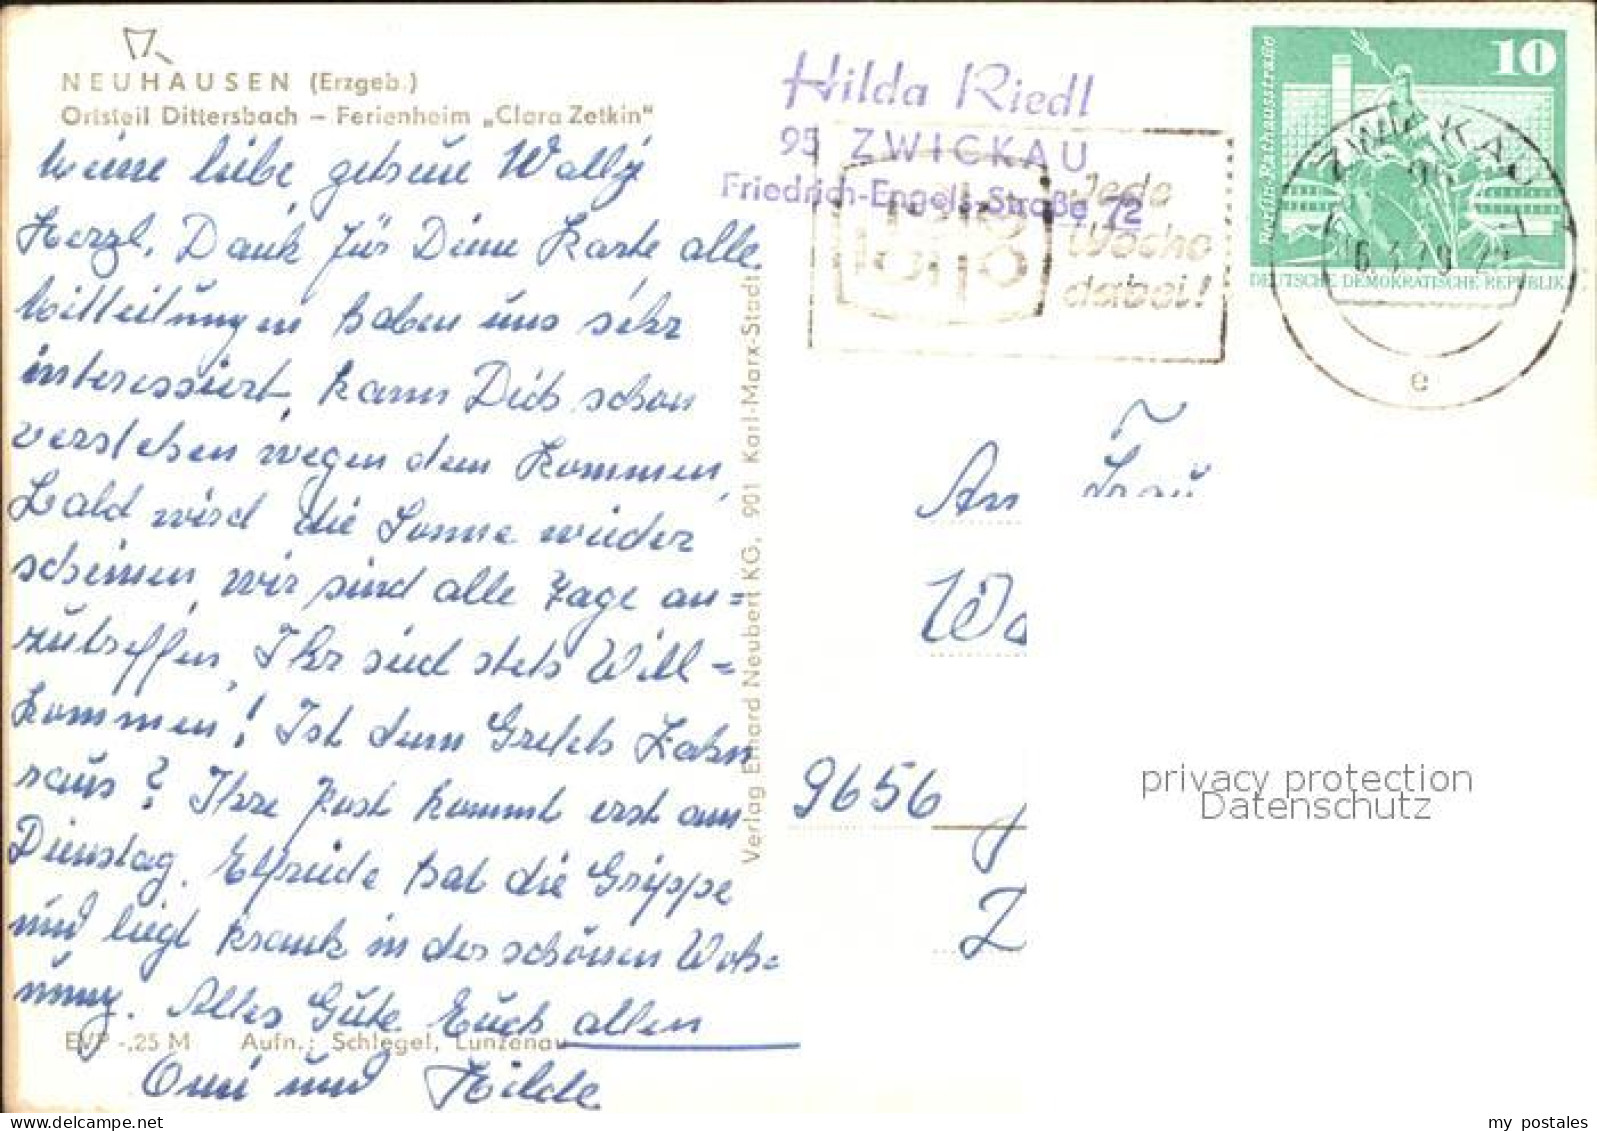 NEUHAUSEN (Erzgeb.)
Ortsteil Dittersbach – Ferienheim „Clara Zetkin"
Meine liebe, getreue Wally
Herzl. Dank für Deine Karte alle
Mitteilungen haben uns sehr
interessiert, kann Dich schon
verstehen wegen dem Kommen,
bald wird die Sonne wieder
scheinen, wir sind alle Tage an=
zutreffen, Ihr seid stets Will=
kommen! Ist denn Gretels Zahn
raus? Ihre Post kommt erst am
Dienstag. Elfriede hat die Grippe
und liegt krank in der schönen Woh=
nung. Alles Gute Euch allen
EVP -,25 M Aufn.: Schlegel, Lunzenau
Omi und Hilde
Verlag Erhard Neubert KG, 901 Karl-Marx-Stadt
Hilda Riedl
95 ZWICKAU
Friedrich-Engels-Straße 72
Jede
Woche
dabei!
10
Berlin-Rathausstraße
DEUTSCHE DEMOKRATISCHE REPUBLIK
ZWICKAU 1
95
e
An Frau
Wa
9656
privacy protection
Datenschutz
my postales